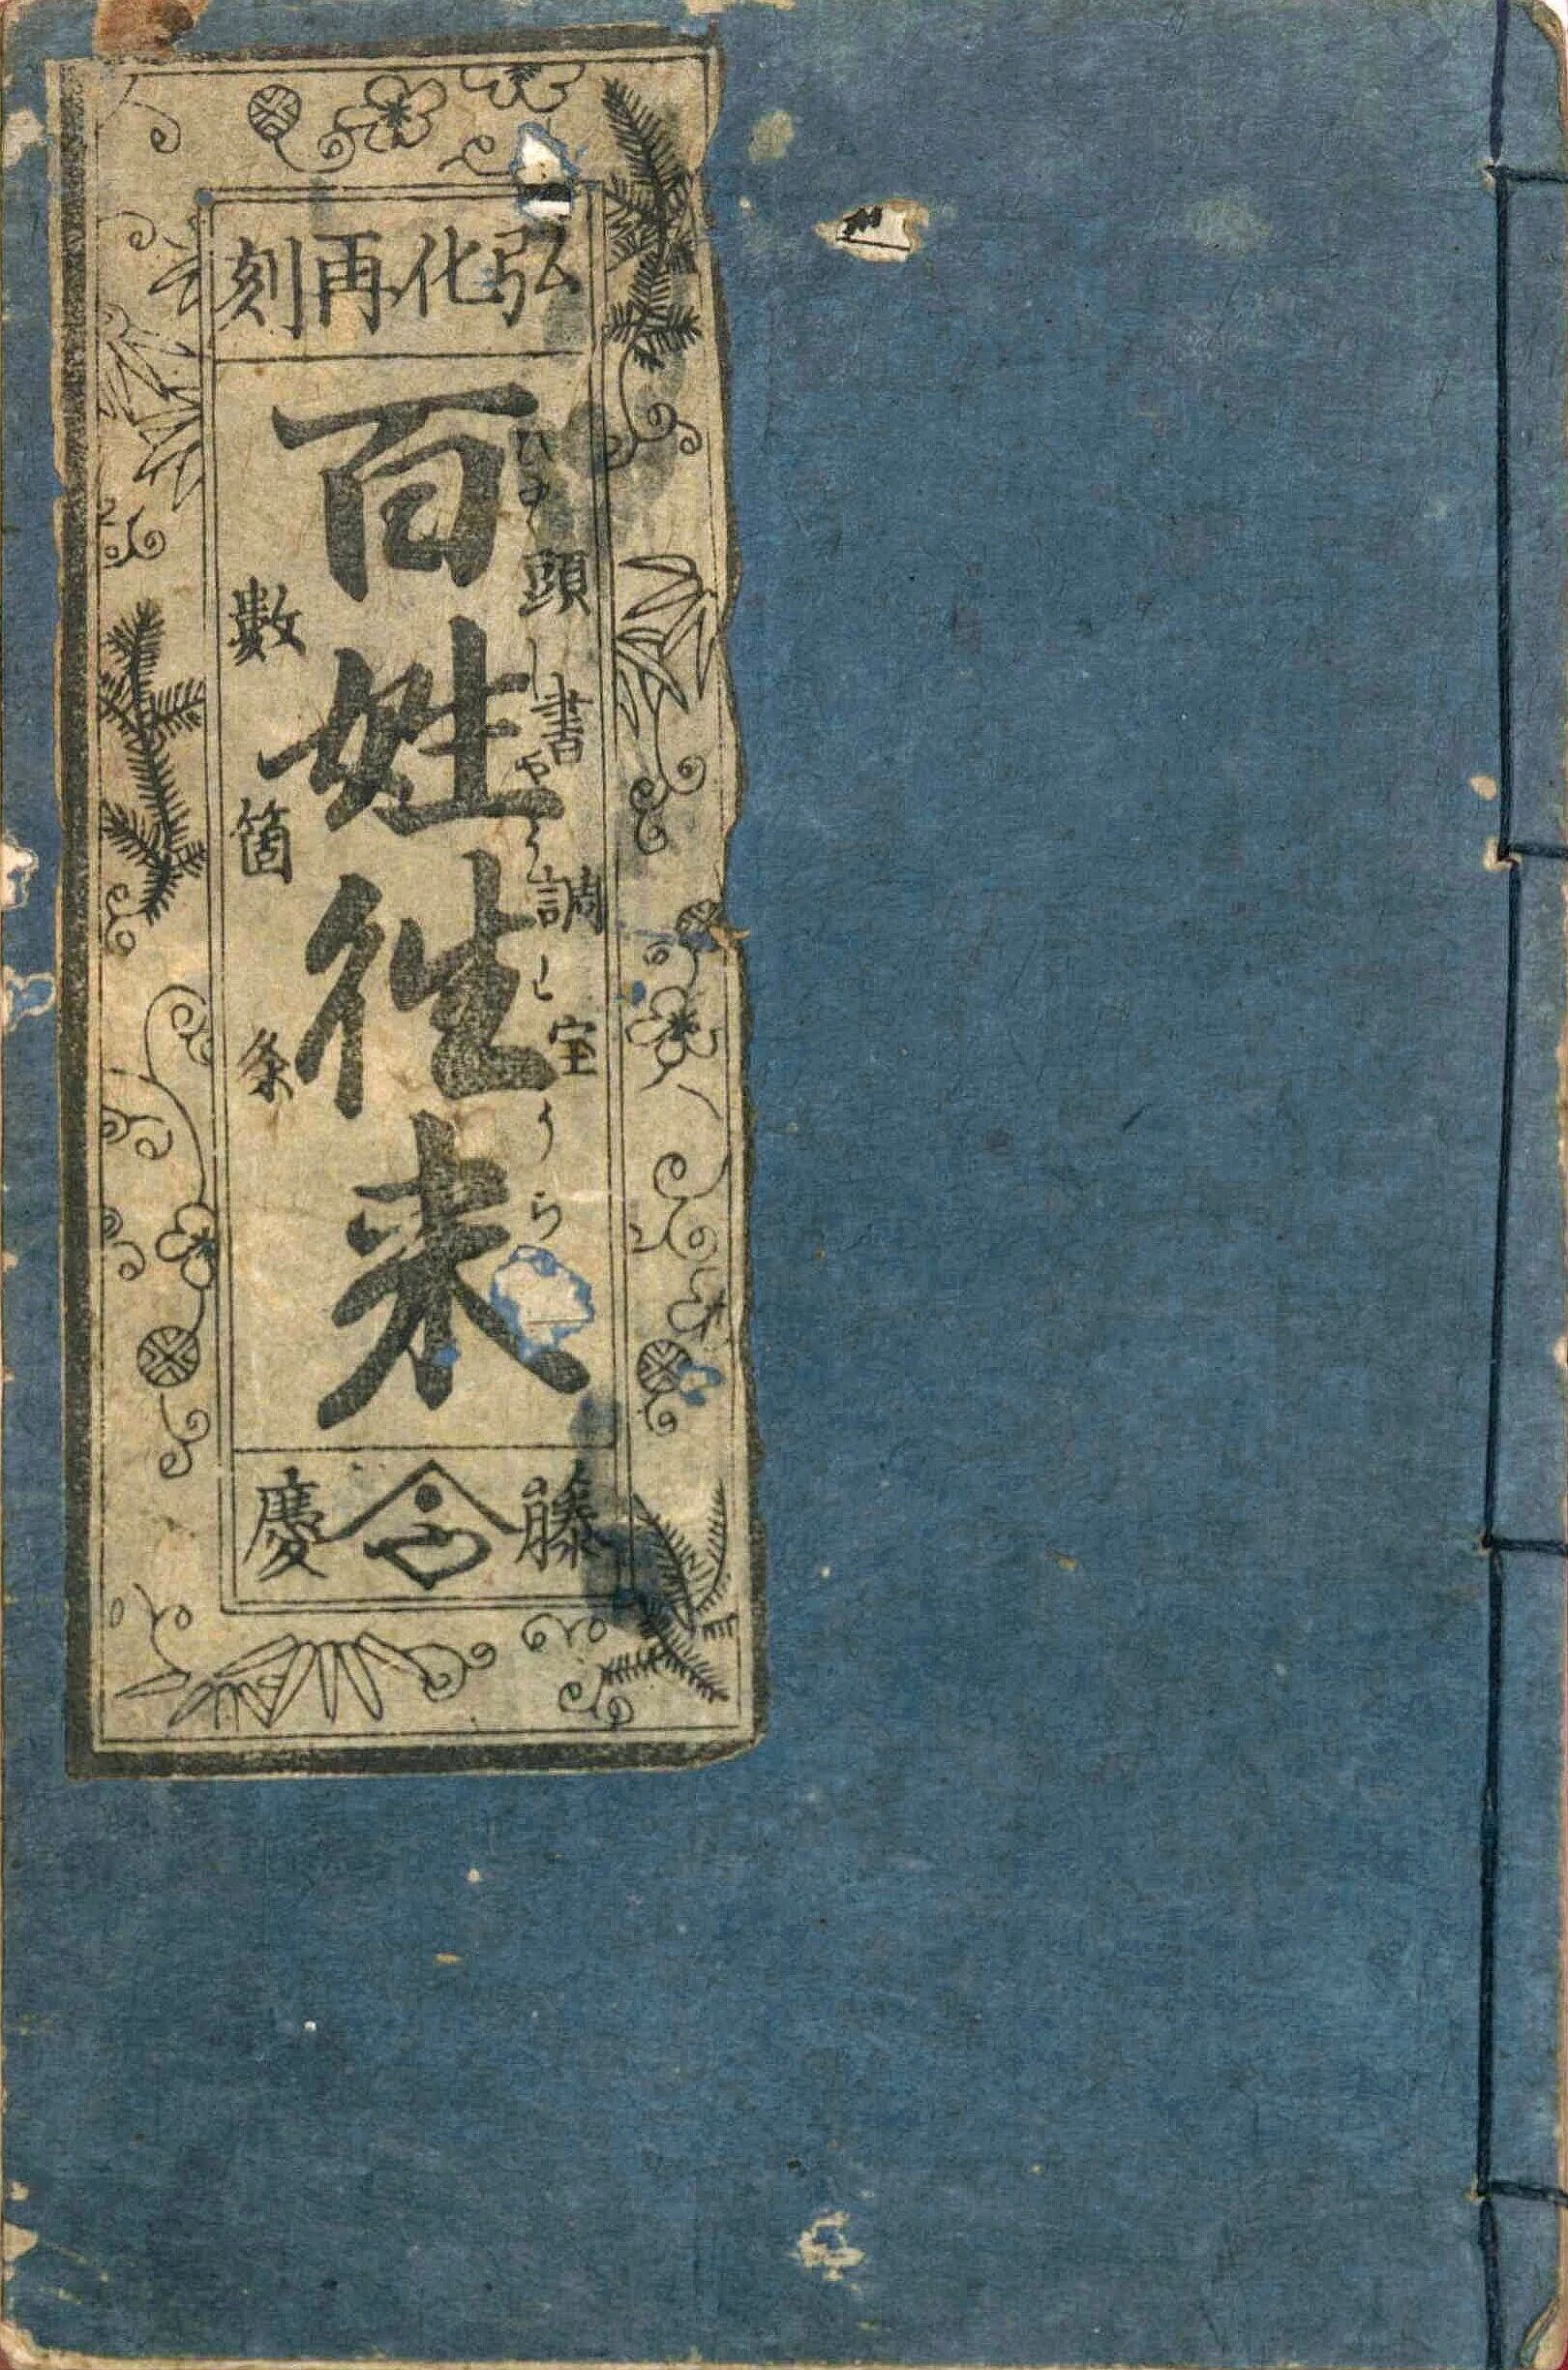 弘化再刻
頭書調宝
百姓往来
ひやくしやうわうらい
數箇条
藤慶